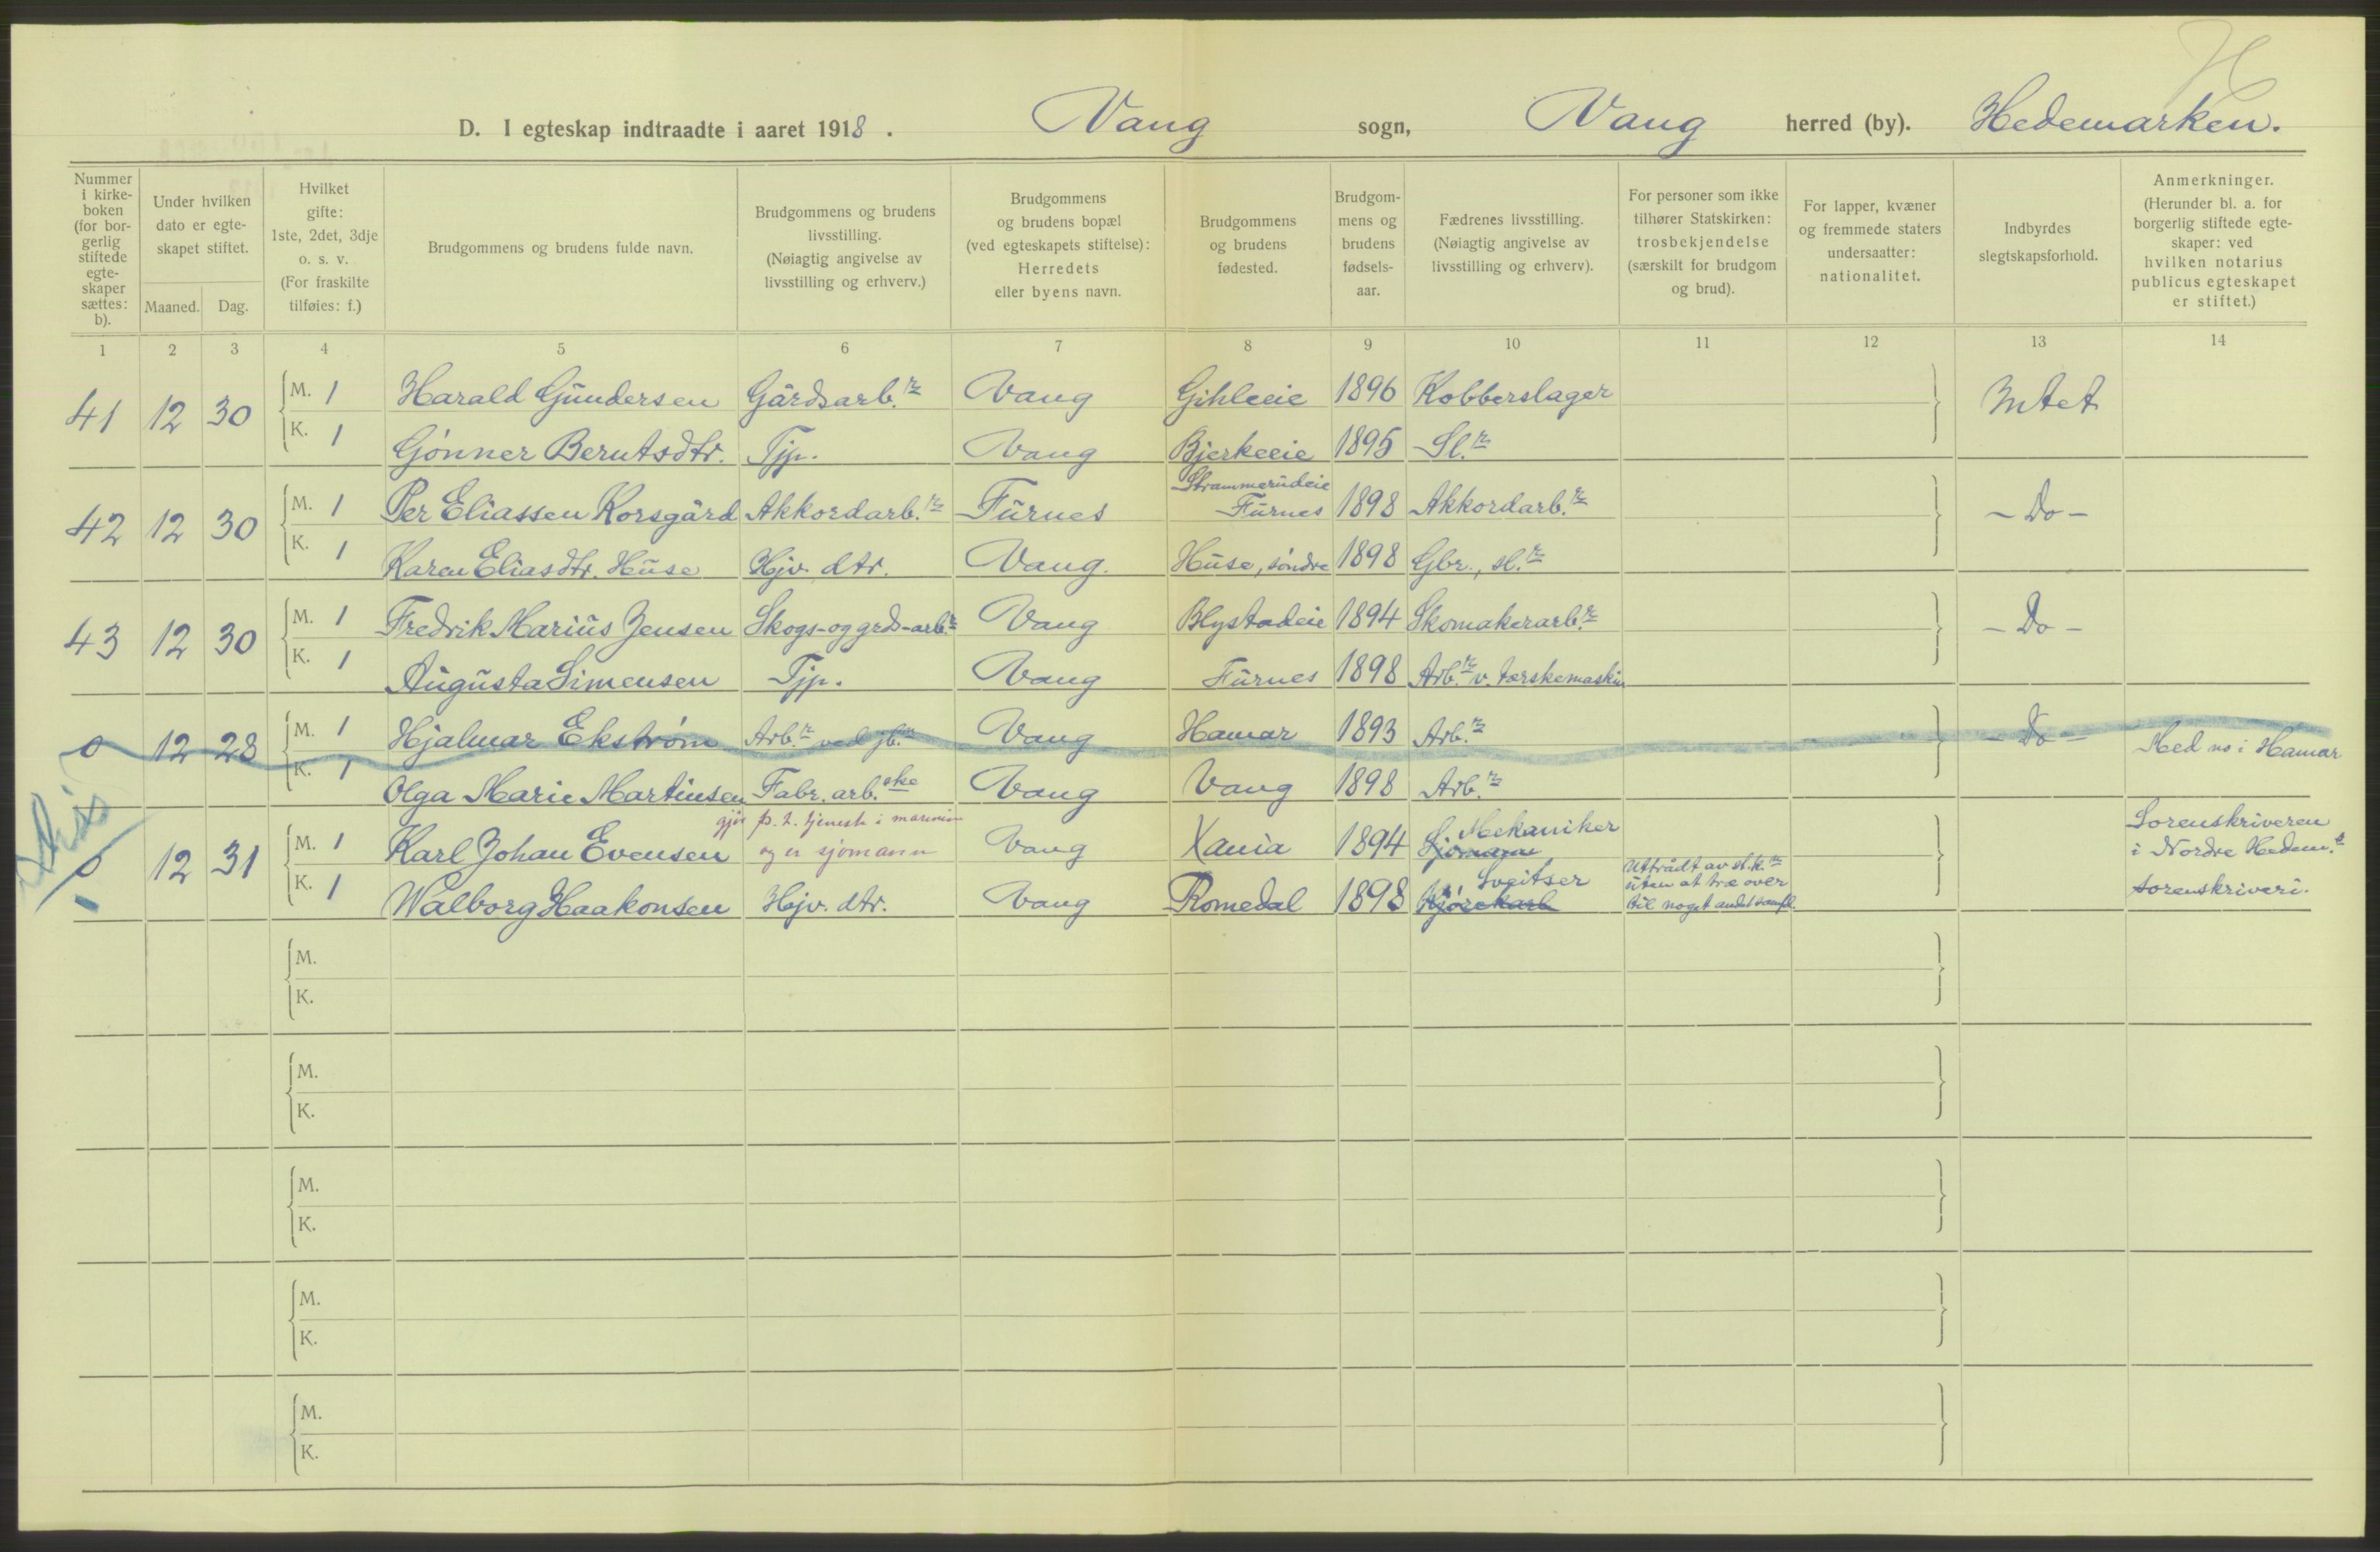 H
D. I egteskap indtraadte i aaret 1918. Vang sogn, Vang herred (by). Hedemarken.
Nummer i kirke-boken (for bor-gerlig stiftede egte-skaper sættes: b).
Under hvilken dato er egte-skapet stiftet.
Maaned. Dag.
Hvilket gifte: 1ste, 2det, 3dje o. s. v. (For fraskilte tilføies: f.)
Brudgommens og brudens fulde navn.
Brudgommens og brudens livsstilling. (Nøiagtig angivelse av livsstilling og erhverv.)
Brudgommens og brudens bopæl (ved egteskapets stiftelse): Herredets eller byens navn.
Brudgommens og brudens fødested.
Brudgom-mens og brudens fødsels-aar.
Fædrenes livsstilling. (Nøiagtig angivelse av livsstilling og erhverv).
For personer som ikke tilhører Statskirken: trosbekjendelse (særskilt for brudgom og brud).
For lapper, kvæner og fremmede staters undersaatter: nationalitet.
Indbyrdes slegtskapsforhold.
Anmerkninger. (Herunder bl. a. for borgerlig stiftede egte-skaper: ved hvilken notarius publicus egteskapet er stiftet.)
1 2 3 4 5 6 7 8 9 10 11 12 13 14
41 12 30 M. 1 Harald Gundersen Gårdsarb.r Vang Gihleeie 1896 Kobberslager Intet
K. 1 Gønner Berntsdtr. Tjp. Vang Bjerkeeie 1895 Sl.r
42 12 30 M. 1 Per Eliassen Korsgård Akkordarb.r Furnes Strammerudeie Furnes 1898 Akkordarb.r - Do -
K. 1 Karen Eliasdtr. Huse Hjv. dtr. Vang. Huse, søndre 1898 Gbr., sl.r
43 12 30 M. 1 Fredrik Marius Jensen Skogs- og grds-arb.r Vang Blystadeie 1894 Skomakerarb.r - Do -
K. 1 Augusta Simensen Tjp. Vang Furnes 1898 Arb.r v. tærskemaskin
0 12 28 M. 1 Hjalmar Ekstrøm Arb.r ved jb. Vang Hamar 1893 Arb.r - Do - Med no i Hamar
K. 1 Olga Marie Martinsen Fabr. arb.ske Vang Vang 1898 Arb.r
gjør p. t. tjeneste i marinen
0 12 31 M. 1 Karl Johan Evensen og er sjømann Vang Xania 1894 Sjømann Mekaniker Sorenskriveren i Nordre Hedem.s sorenskriveri.
K. 1 Walborg Haakonsen Hjv. dtr. Vang Romedal 1898 Kjørekarl Sveitser Uttrådt av st.k.n uten at træ over til noget andet samfd.
M.
K.
M.
K.
M.
K.
M.
K.
M.
K.